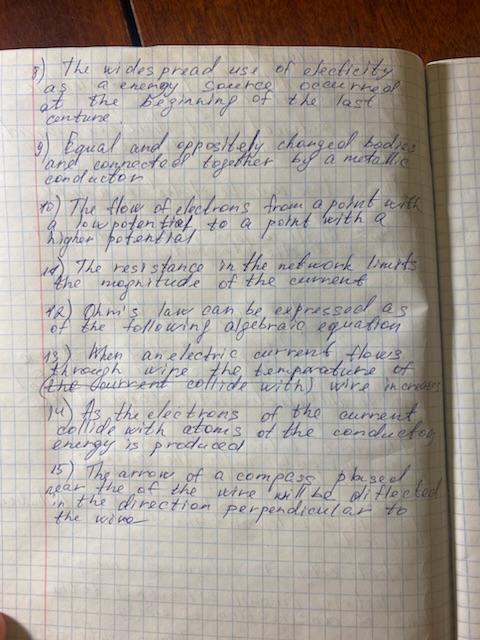 8) The widespread use of electicity
as a energy source occurred
at the beginning of the last
centure
9) Equal and oppositely changed bodies
and connected together by a metallic
conductor
10) The flow of electrons from a point with
a low potential to a point with a
higher potential
11) The resistance in the network limits
the magnitude of the current
12) Ohm's law can be expressed as
of the following algebraic equation
13) When an electric current flows
through wire the temperature of
(the current collide with) wire increases
14) As the electrons of the current
collide with atoms of the conductor,
energy is produced
15) The arrow of a compass plased
near the of the wire will be diflected
in the direction perpendicular to
the wire